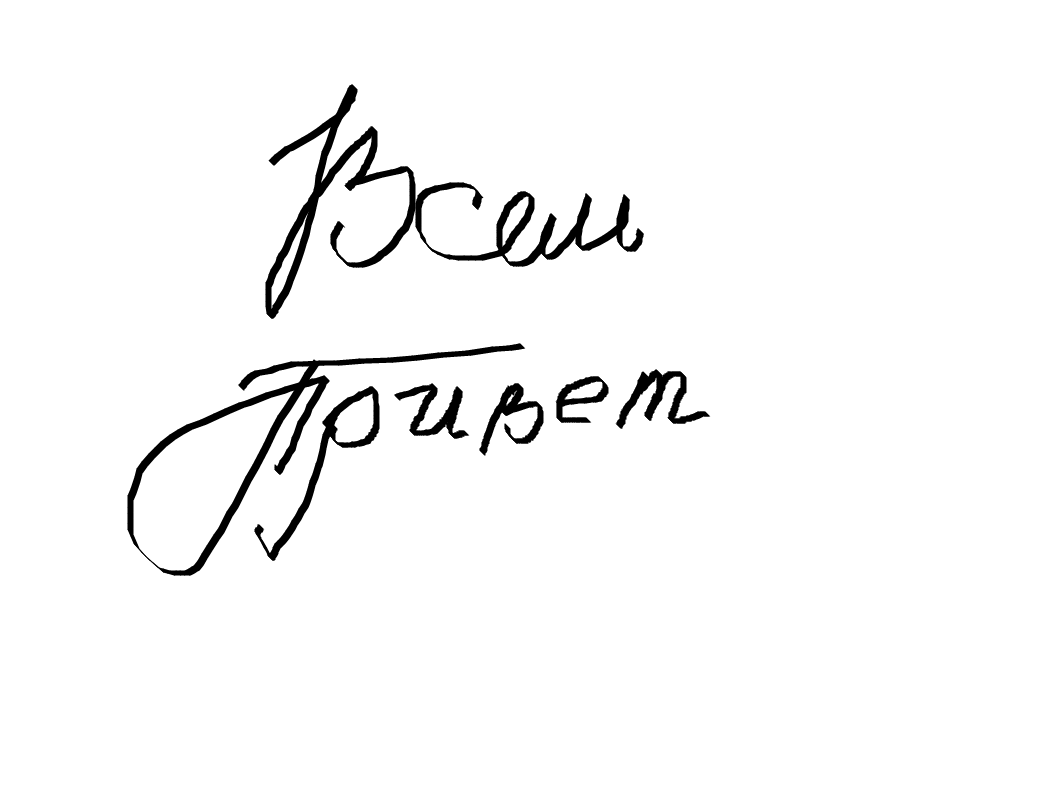 Всем
Привет